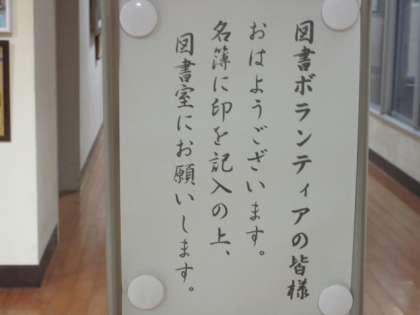 図書ボランティアの皆様
おはようございます。
名簿に印を記入の上、
図書室にお願いします。